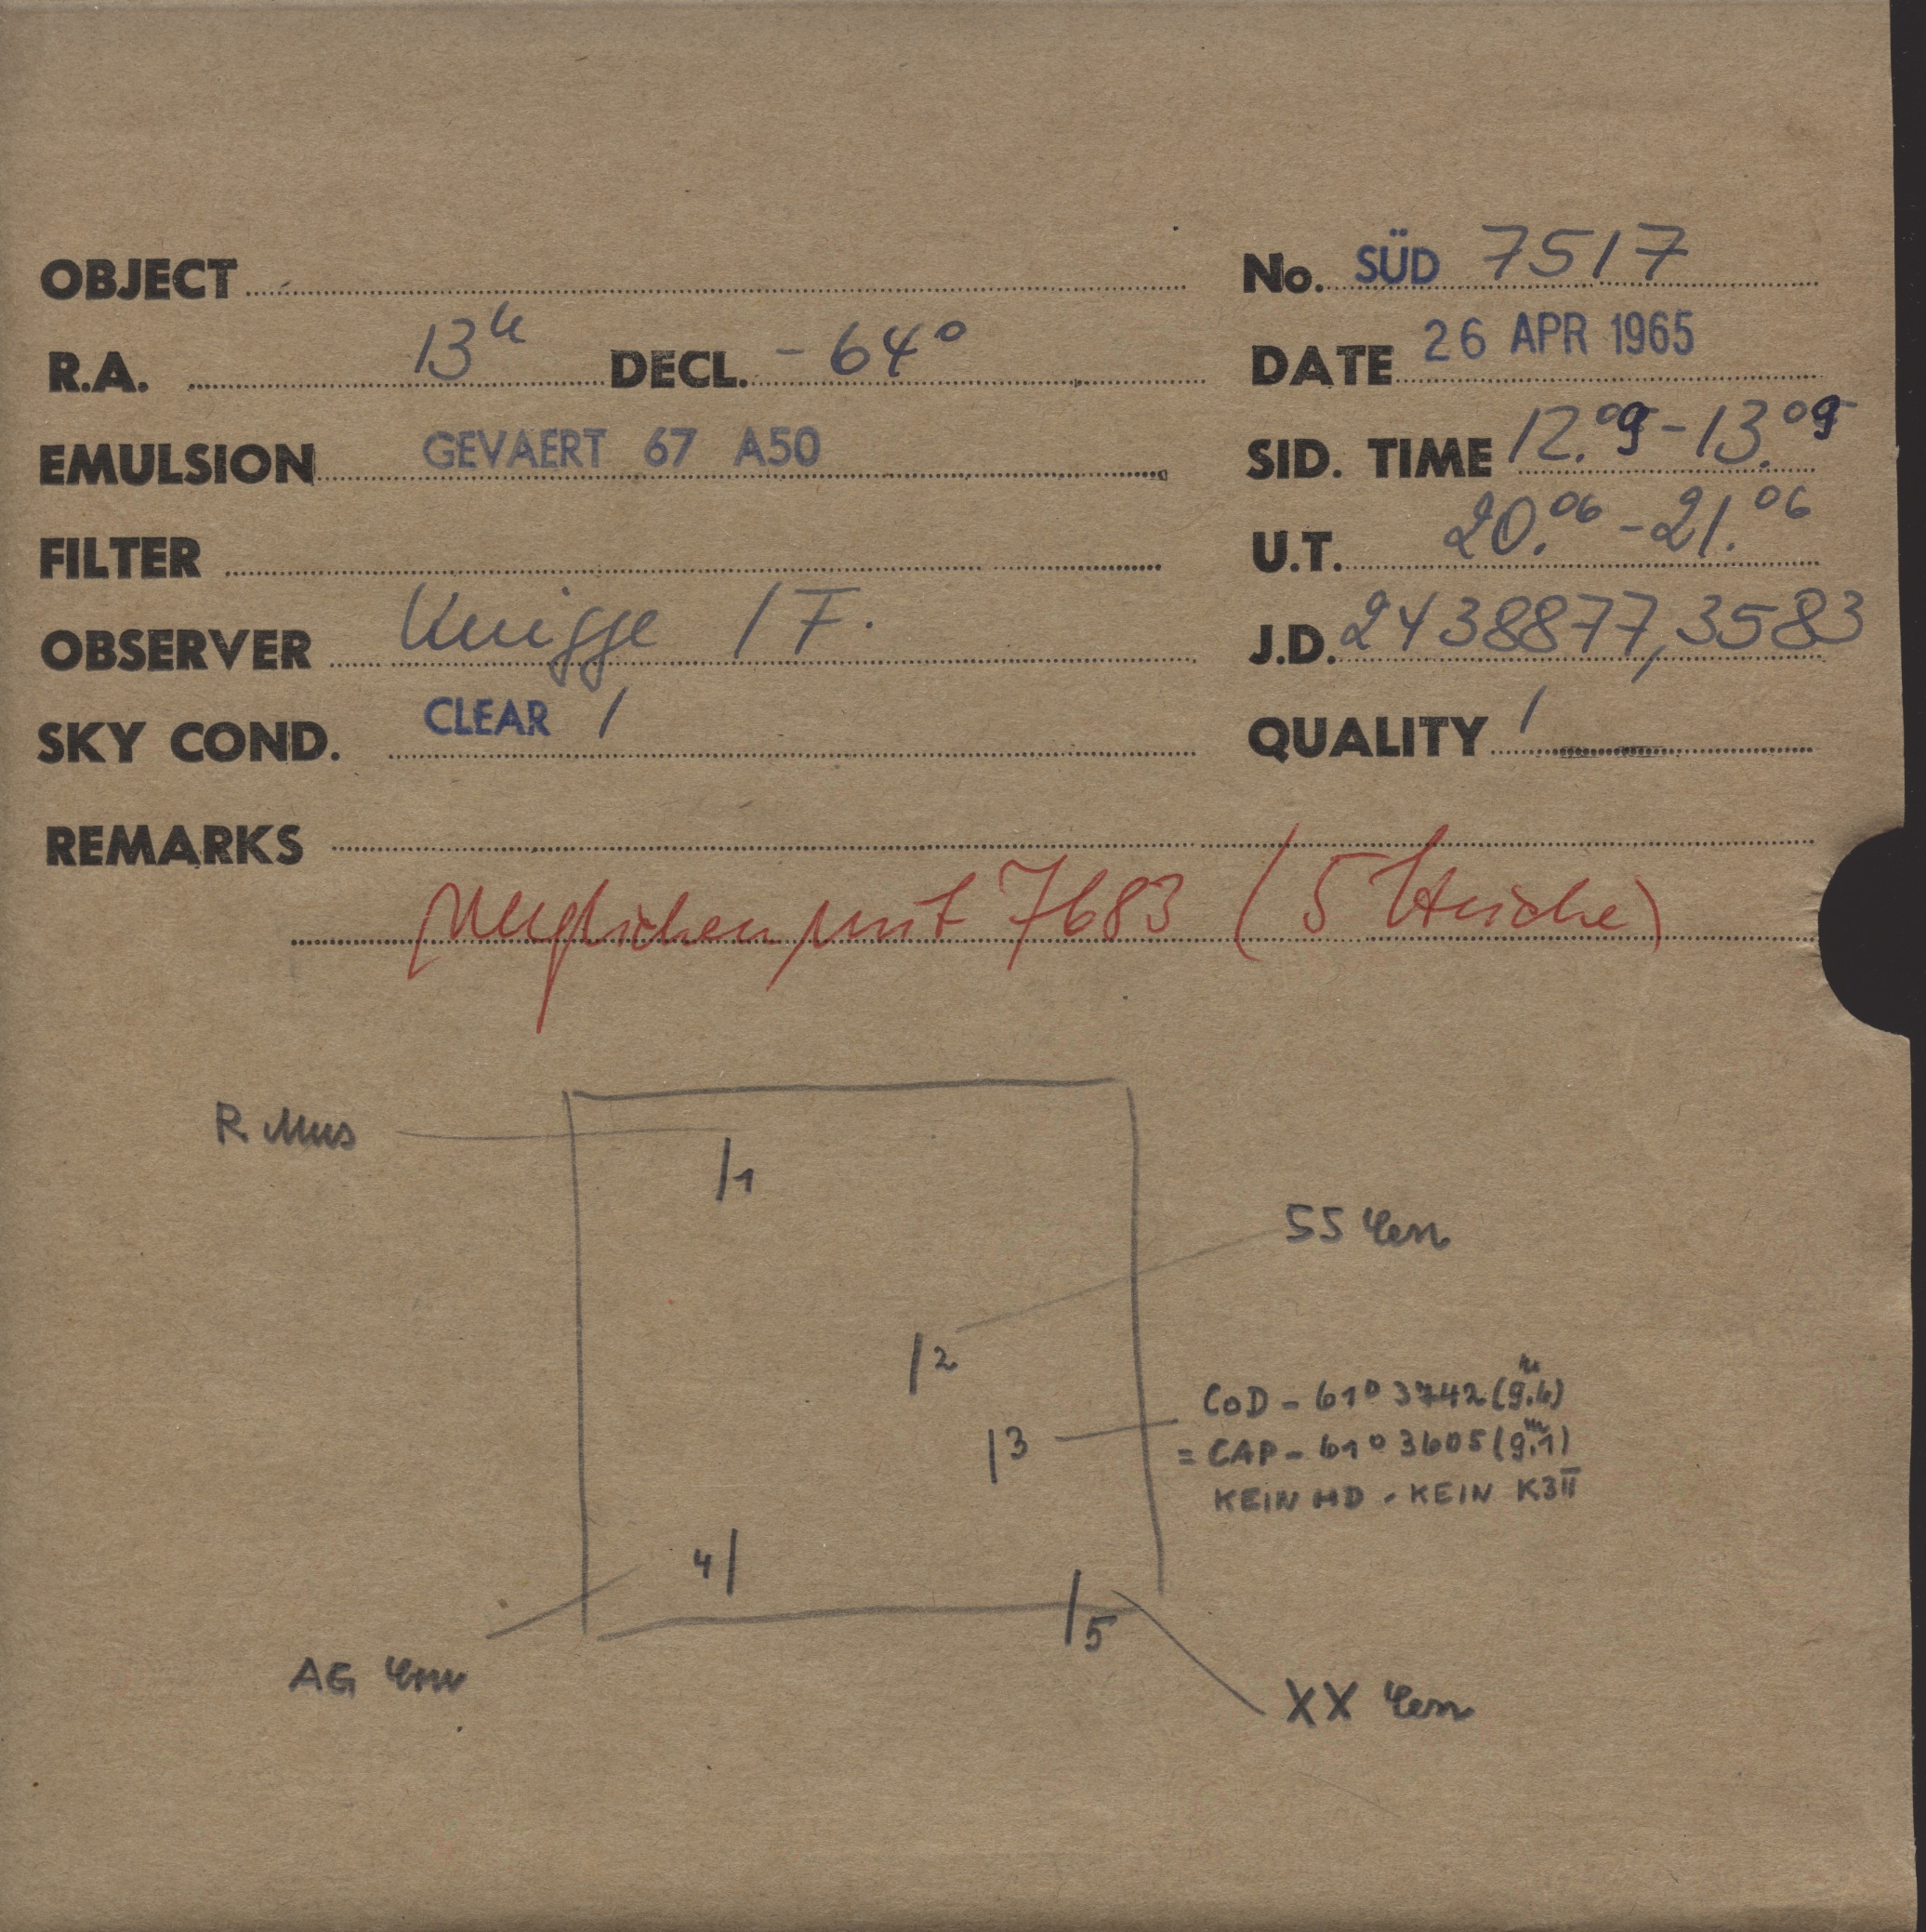 OBJECT
No. SÜD 7517
R.A. 13h DECL. -64°
DATE 26 APR 1965
EMULSION GEVAERT 67 A50
SID. TIME 12.09 - 13.09
FILTER
U.T. 20.06 - 21.06
OBSERVER Knigge / F.
J.D. 2438877,3583
SKY COND. CLEAR /
QUALITY /
REMARKS
verglichen mit 7683 (5 Striche)
R Mus
1
SS Cen
2
CoD - 61° 3742 (9.m6)
3
= CAP - 61° 3605 (9.m1)
KEIN HD - KEIN K3II
4
5
AG Cen
XX Cen